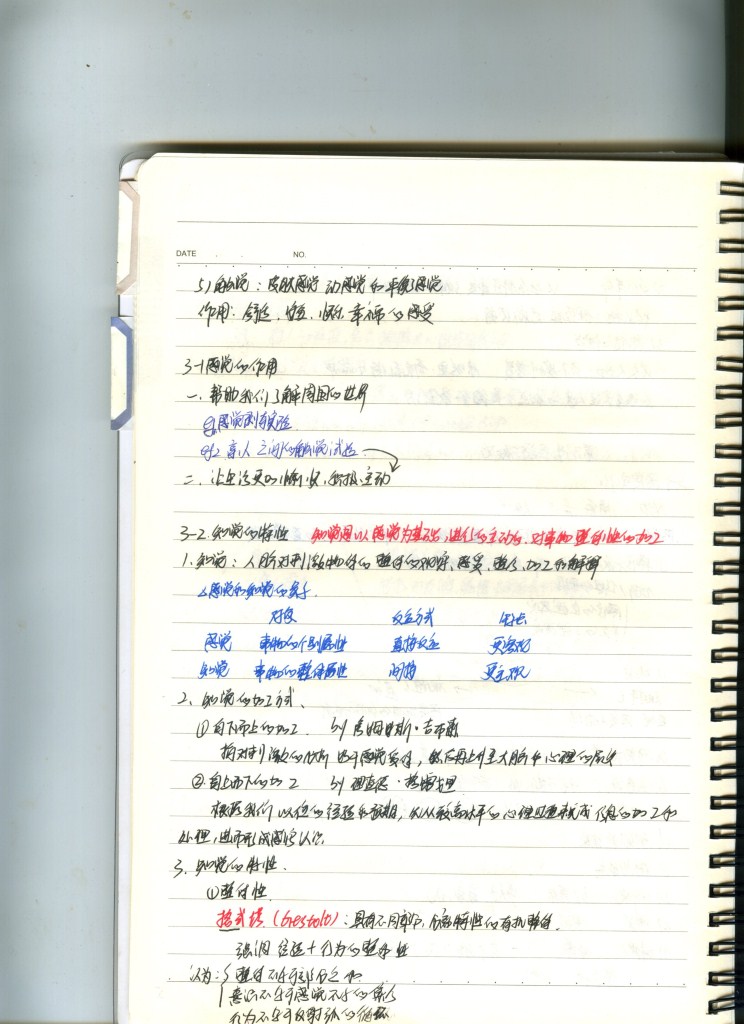 DATE . . NO.
5) 触觉：皮肤感觉 动感觉和平衡感觉
作用：舒适、安全、心财、幸福的感受
3-1 感觉的作用
一、帮助我们了解周围的世界
eg1 感觉剥夺实验
eg2 亲人之间的触觉试验
二、让生活更 积极、主动
3-2. 知觉的特性 知觉是以感觉为基础，进行的主动的、对事物整体性的加工
1. 知觉：人脑对刺激物体的整体的观察、感受、整合、加工和解释
△感觉和知觉的差异
对象 反应方式 生长
感觉 事物的个别属性 直接反应 更客观
知觉 事物的整体属性 间接 更主观
2. 知觉的加工方式
①自下而上的加工 by 詹姆斯·吉布森
指对刺激的分析 始于感觉 ，然后再上升至大脑中心理的层次
②自上而下的加工 by 理查德·格雷戈里
根据我们以往的经验和预期，从较高水平的心理过程就成信息的加工和
处理，进而形成感官认识
3. 知觉的特性
①整体性
格式塔（Gestalt）：具有不同部分、分离特性的有机整体
强调 经验+行为的整体性
认为：整体不等于部分之和
意识不等于感觉元素的集合
行为不等于反射弧的循环